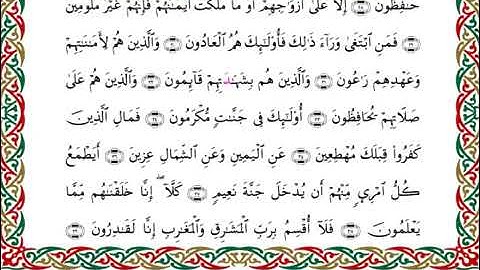 حَٰفِظُونَ ﴿٢٩﴾ إِلَّا عَلَىٰٓ أَزْوَٰجِهِمْ أَوْ مَا مَلَكَتْ أَيْمَٰنُهُمْ فَإِنَّهُمْ غَيْرُ مَلُومِينَ
﴿٣٠﴾ فَمَنِ ٱبْتَغَىٰ وَرَآءَ ذَٰلِكَ فَأُو۟لَٰٓئِكَ هُمُ ٱلْعَادُونَ ﴿٣١﴾ وَٱلَّذِينَ هُمْ لِأَمَٰنَٰتِهِمْ
وَعَهْدِهِمْ رَٰعُونَ ﴿٣٢﴾ وَٱلَّذِينَ هُم بِشَهَٰدَٰتِهِمْ قَآئِمُونَ ﴿٣٣﴾ وَٱلَّذِينَ هُمْ عَلَىٰ
صَلَاتِهِمْ يُحَافِظُونَ ﴿٣٤﴾ أُو۟لَٰٓئِكَ فِى جَنَّٰتٍ مُّكْرَمُونَ ﴿٣٥﴾ فَمَالِ ٱلَّذِينَ
كَفَرُوا۟ قِبَلَكَ مُهْطِعِينَ ﴿٣٦﴾ عَنِ ٱلْيَمِينِ وَعَنِ ٱلشِّمَالِ عِزِينَ ﴿٣٧﴾ أَيَطْمَعُ
كُلُّ ٱمْرِئٍ مِّنْهُمْ أَن يُدْخَلَ جَنَّةَ نَعِيمٍ ﴿٣٨﴾ كَلَّآ ۖ إِنَّا خَلَقْنَٰهُم مِّمَّا
يَعْلَمُونَ ﴿٣٩﴾ فَلَآ أُقْسِمُ بِرَبِّ ٱلْمَشَٰرِقِ وَٱلْمَغَٰرِبِ إِنَّا لَقَٰدِرُونَ ﴿٤٠﴾